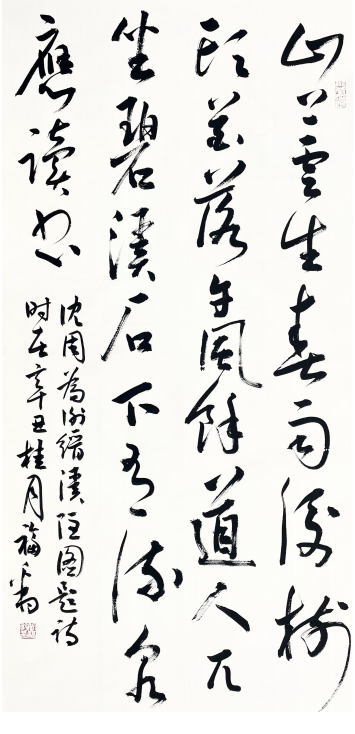 山上雲生春雨後樹
頭花落午風餘道人兀
坐碧溪石不流泉
應讀書
沈周為縉溪隱图題詩
时在辛丑桂月福翁